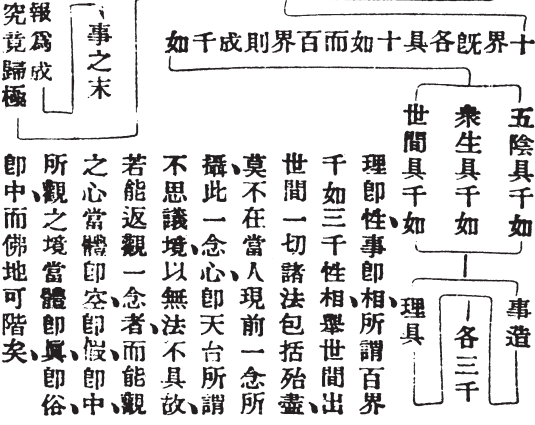 十界既各具十如而百界則成千如
五陰具千如
衆生具千如
世間具千如
事造
各三千
理具
理卽性、事卽相、所謂百界
千如三千性相、舉世間出
世間一切諸法包括殆盡、
莫不在當人現前一念所
攝、此一念心、卽天台所謂
不思議境、以無法不具故、
若能返觀一念者、而能觀
之心當體卽空、卽假、卽中、
所觀之境當體卽眞、卽俗、
卽中、而佛地可階矣、
事之末
報爲成
究竟歸極